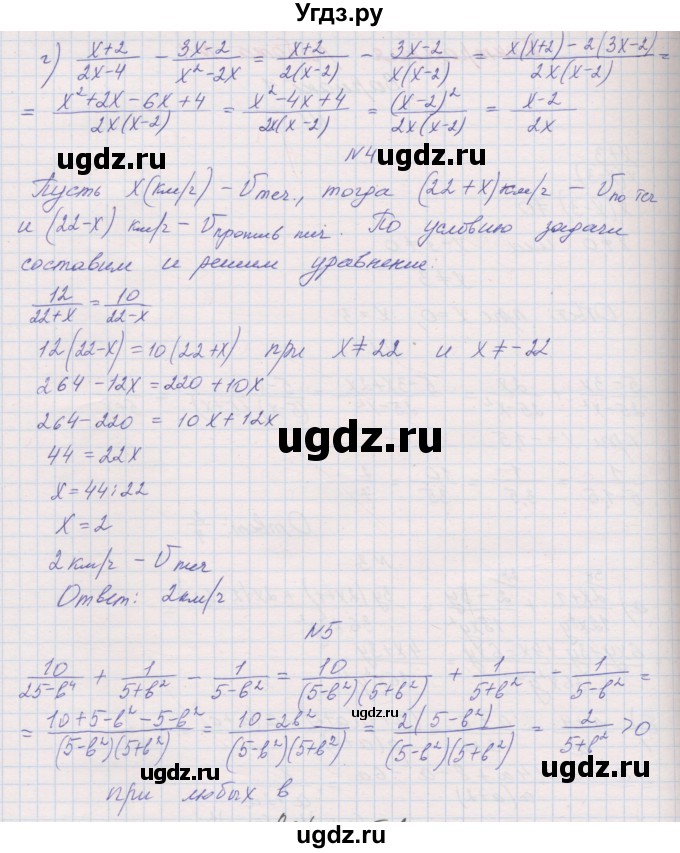 Угдз.ру
г) (x+2)/(2x-4) - (3x-2)/(x²-2x) = (x+2)/(2(x-2)) - (3x-2)/(x(x-2)) = (x(x+2)-2(3x-2))/(2x(x-2)) =
= (x²+2x-6x+4)/(2x(x-2)) = (x²-4x+4)/(2x(x-2)) = (x-2)²/(2x(x-2)) = (x-2)/(2x)
ugdz.ru ugdz.ru
№4
Пусть x(км/ч) - Vтеч., тогда (22+x)км/ч - Vпо теч
ugdz.ru ugdz.ru
и (22-x) км/ч - Vпротив теч. По условию задачи
составим и решим уравнение:
12/(22+x) = 10/(22-x)
12(22-x) = 10(22+x) при x≠22 и x≠-22
264-12x = 220+10x
264-220 = 10x+12x
ugdz.ru
44 = 22x
x = 44:22
ugdz.ru
x = 2
2км/ч - Vтеч
Ответ: 2км/ч
ugdz.ru
№5
10/(25-в⁴) + 1/(5+в²) - 1/(5-в²) = 10/((5-в²)(5+в²)) + 1/(5+в²) - 1/(5-в²) =
ugdz.ru
= (10+5-в²-5-в²)/((5-в²)(5+в²)) = (10-2в²)/((5-в²)(5+в²)) = 2(5-в²)/((5-в²)(5+в²)) = 2/(5+в²) > 0
ugdz.ru ugdz.ru
при любых в
ugdz.ru